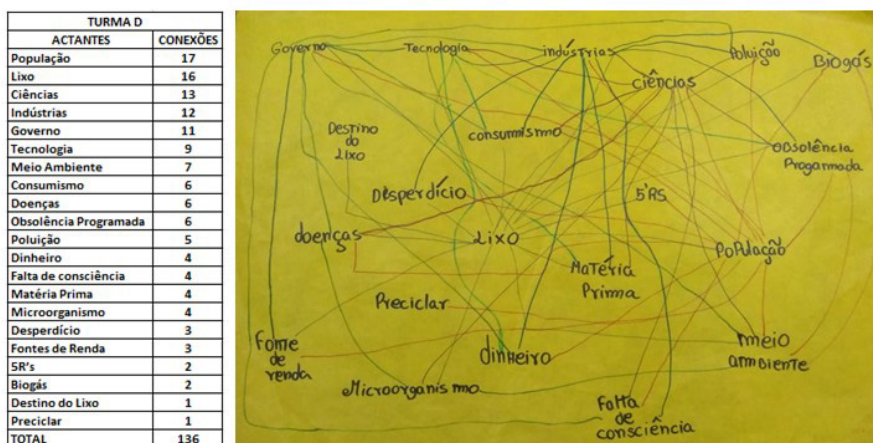 TURMA D
ACTANTES CONEXÕES
População 17
Lixo 16
Ciências 13
Indústrias 12
Governo 11
Tecnologia 9
Meio Ambiente 7
Consumismo 6
Doenças 6
Obsolência Programada 6
Poluição 5
Dinheiro 4
Falta de consciência 4
Matéria Prima 4
Microorganismo 4
Desperdício 3
Fontes de Renda 3
5R's 2
Biogás 2
Destino do Lixo 1
Preciclar 1
TOTAL 136
Governo Tecnologia indústrias Poluição Biogás
ciências
Destino
do
Lixo
consumismo
obsolência
Progarmada
Desperdício
5'RS
doenças
Lixo
População
Matéria
Prima
Preciclar
Fonte
de
renda
dinheiro
meio
ambiente
Microorganismo
Falta
de
consciência